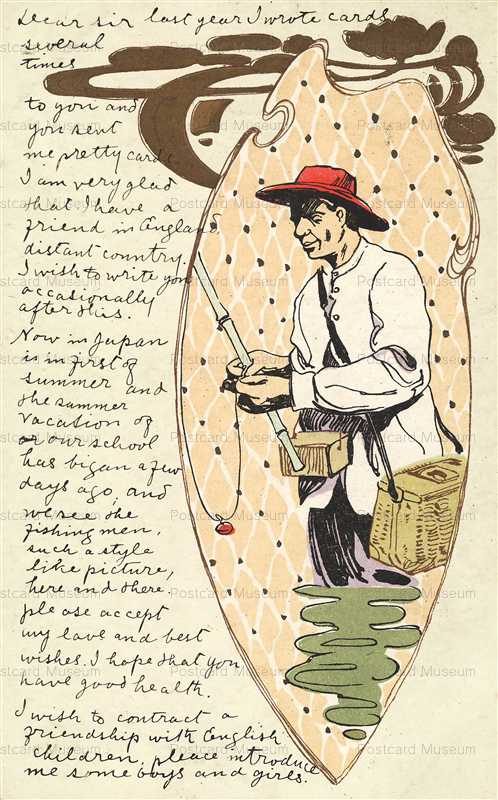 Dear sir last year I wrote cards
several
times
to you and
you sent
me pretty cards.
I am very glad
that I have a
friend in England,
distant country.
I wish to write you
occasionally
after this.
Now in Japan
is in first of
summer and
the summer
vacation of
our school
has began a few
days ago, and
we see the
fishing men,
such a style
like picture,
here and there.
please accept
my love and best
wishes. I hope that you
have good health.
I wish to contract a
friendship with English
children, pleace introduce
me some boys and girls.
Postcard Museum